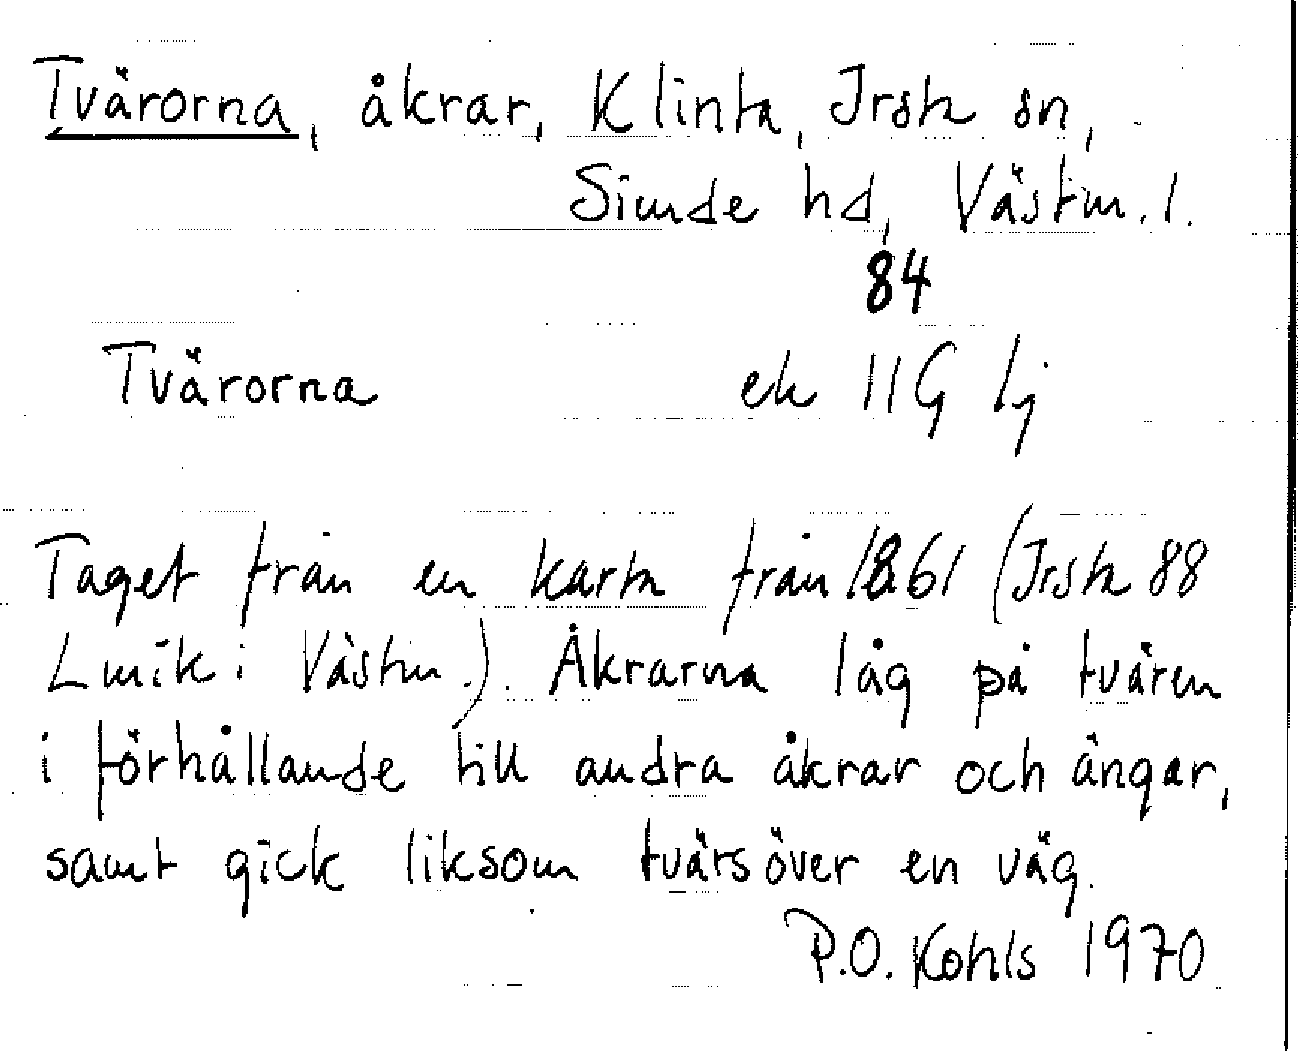 Tvärorna, åkrar, Klinta, Irsta sn,
Siende hd, Västm. l.
84
Tvärorna ek 11G hj
Taget från en karta från 1861 (Irsta 88
Lmk i Västm.). Åkrarna låg på tvären
i förhållande till andra åkrar och ängar,
samt gick liksom tvärsöver en väg.
P.O. Kohls 1970